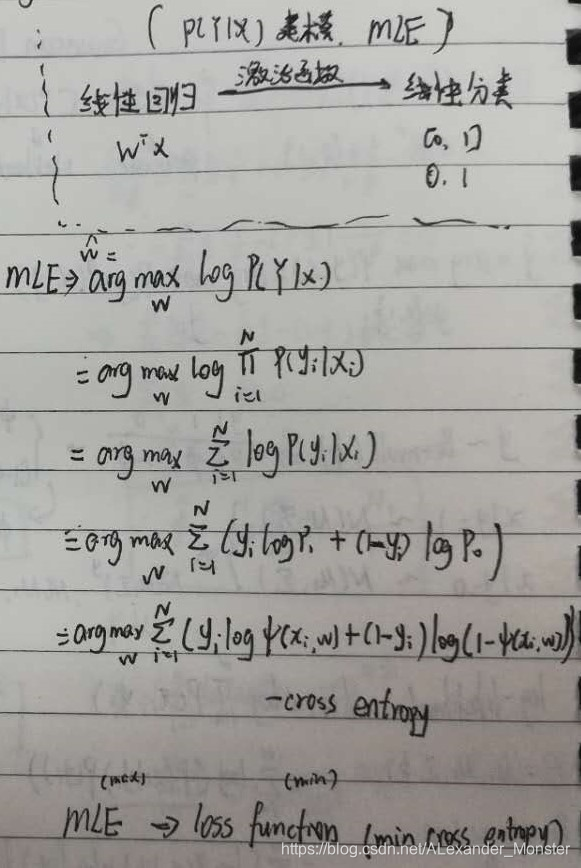 ( P(Y|X) 建模. MLE )
线性回归 激活函数 → 线性分类
Wᵀx [0, 1]
0. 1
MLE ⇒ ŵ = arg max_W log P(Y|X)
= arg max_W log ∏_{i=1}^N P(y_i|x_i)
= arg max_W ∑_{i=1}^N log P(y_i|x_i)
= arg max_W ∑_{i=1}^N (y_i log P_1 + (1-y_i) log P_0)
= arg max_W ∑_{i=1}^N (y_i log ψ(x_i, w) + (1-y_i) log (1-ψ(x_i, w)))
-cross entropy
(max) (min)
MLE → loss function (min cross entropy)
https://blog.csdn.net/ALexander_Monster